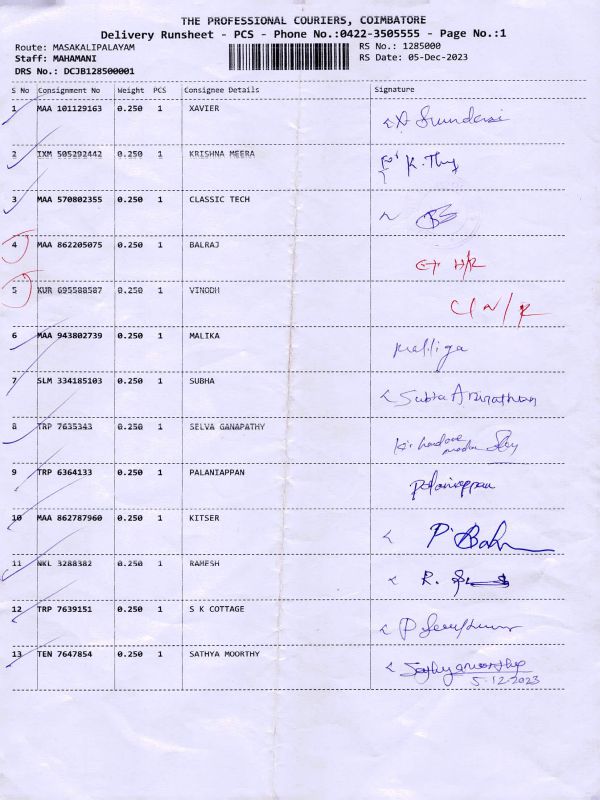 THE PROFESSIONAL COURIERS, COIMBATORE
Delivery Runsheet - PCS - Phone No.:0422-3505555 - Page No.:1
Route: MASAKALIPALAYAM RS No.: 1285000
Staff: MAHAMANI RS Date: 05-Dec-2023
DRS No.: DCJB128500001
S No Consignment No Weight PCS Consignee Details Signature
1 MAA 101129163 0.250 1 XAVIER
2 IXM 505292442 0.250 1 KRISHNA MEERA
3 MAA 570802355 0.250 1 CLASSIC TECH
4 MAA 862205075 0.250 1 BALRAJ
5 KUR 695588587 0.250 1 VINODH C/N/R
6 MAA 943802739 0.250 1 MALIKA Malliga
7 SLM 334185103 0.250 1 SUBHA Subha
8 TRP 7635343 0.250 1 SELVA GANAPATHY
9 TRP 6364133 0.250 1 PALANIAPPAN Palaniappan
10 MAA 862787960 0.250 1 KITSER
11 NKL 3288382 0.250 1 RAMESH R.
12 TRP 7639151 0.250 1 S K COTTAGE
13 TEN 7647854 0.250 1 SATHYA MOORTHY Sathyamoorthy
5.12.2023